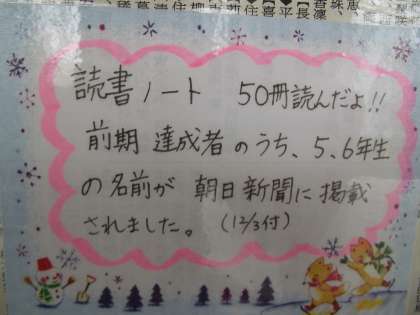 読書ノート 50冊読んだよ!!
前期 達成者のうち、5、6年生
の名前が 朝日新聞に掲載
されました。 (12/3付)